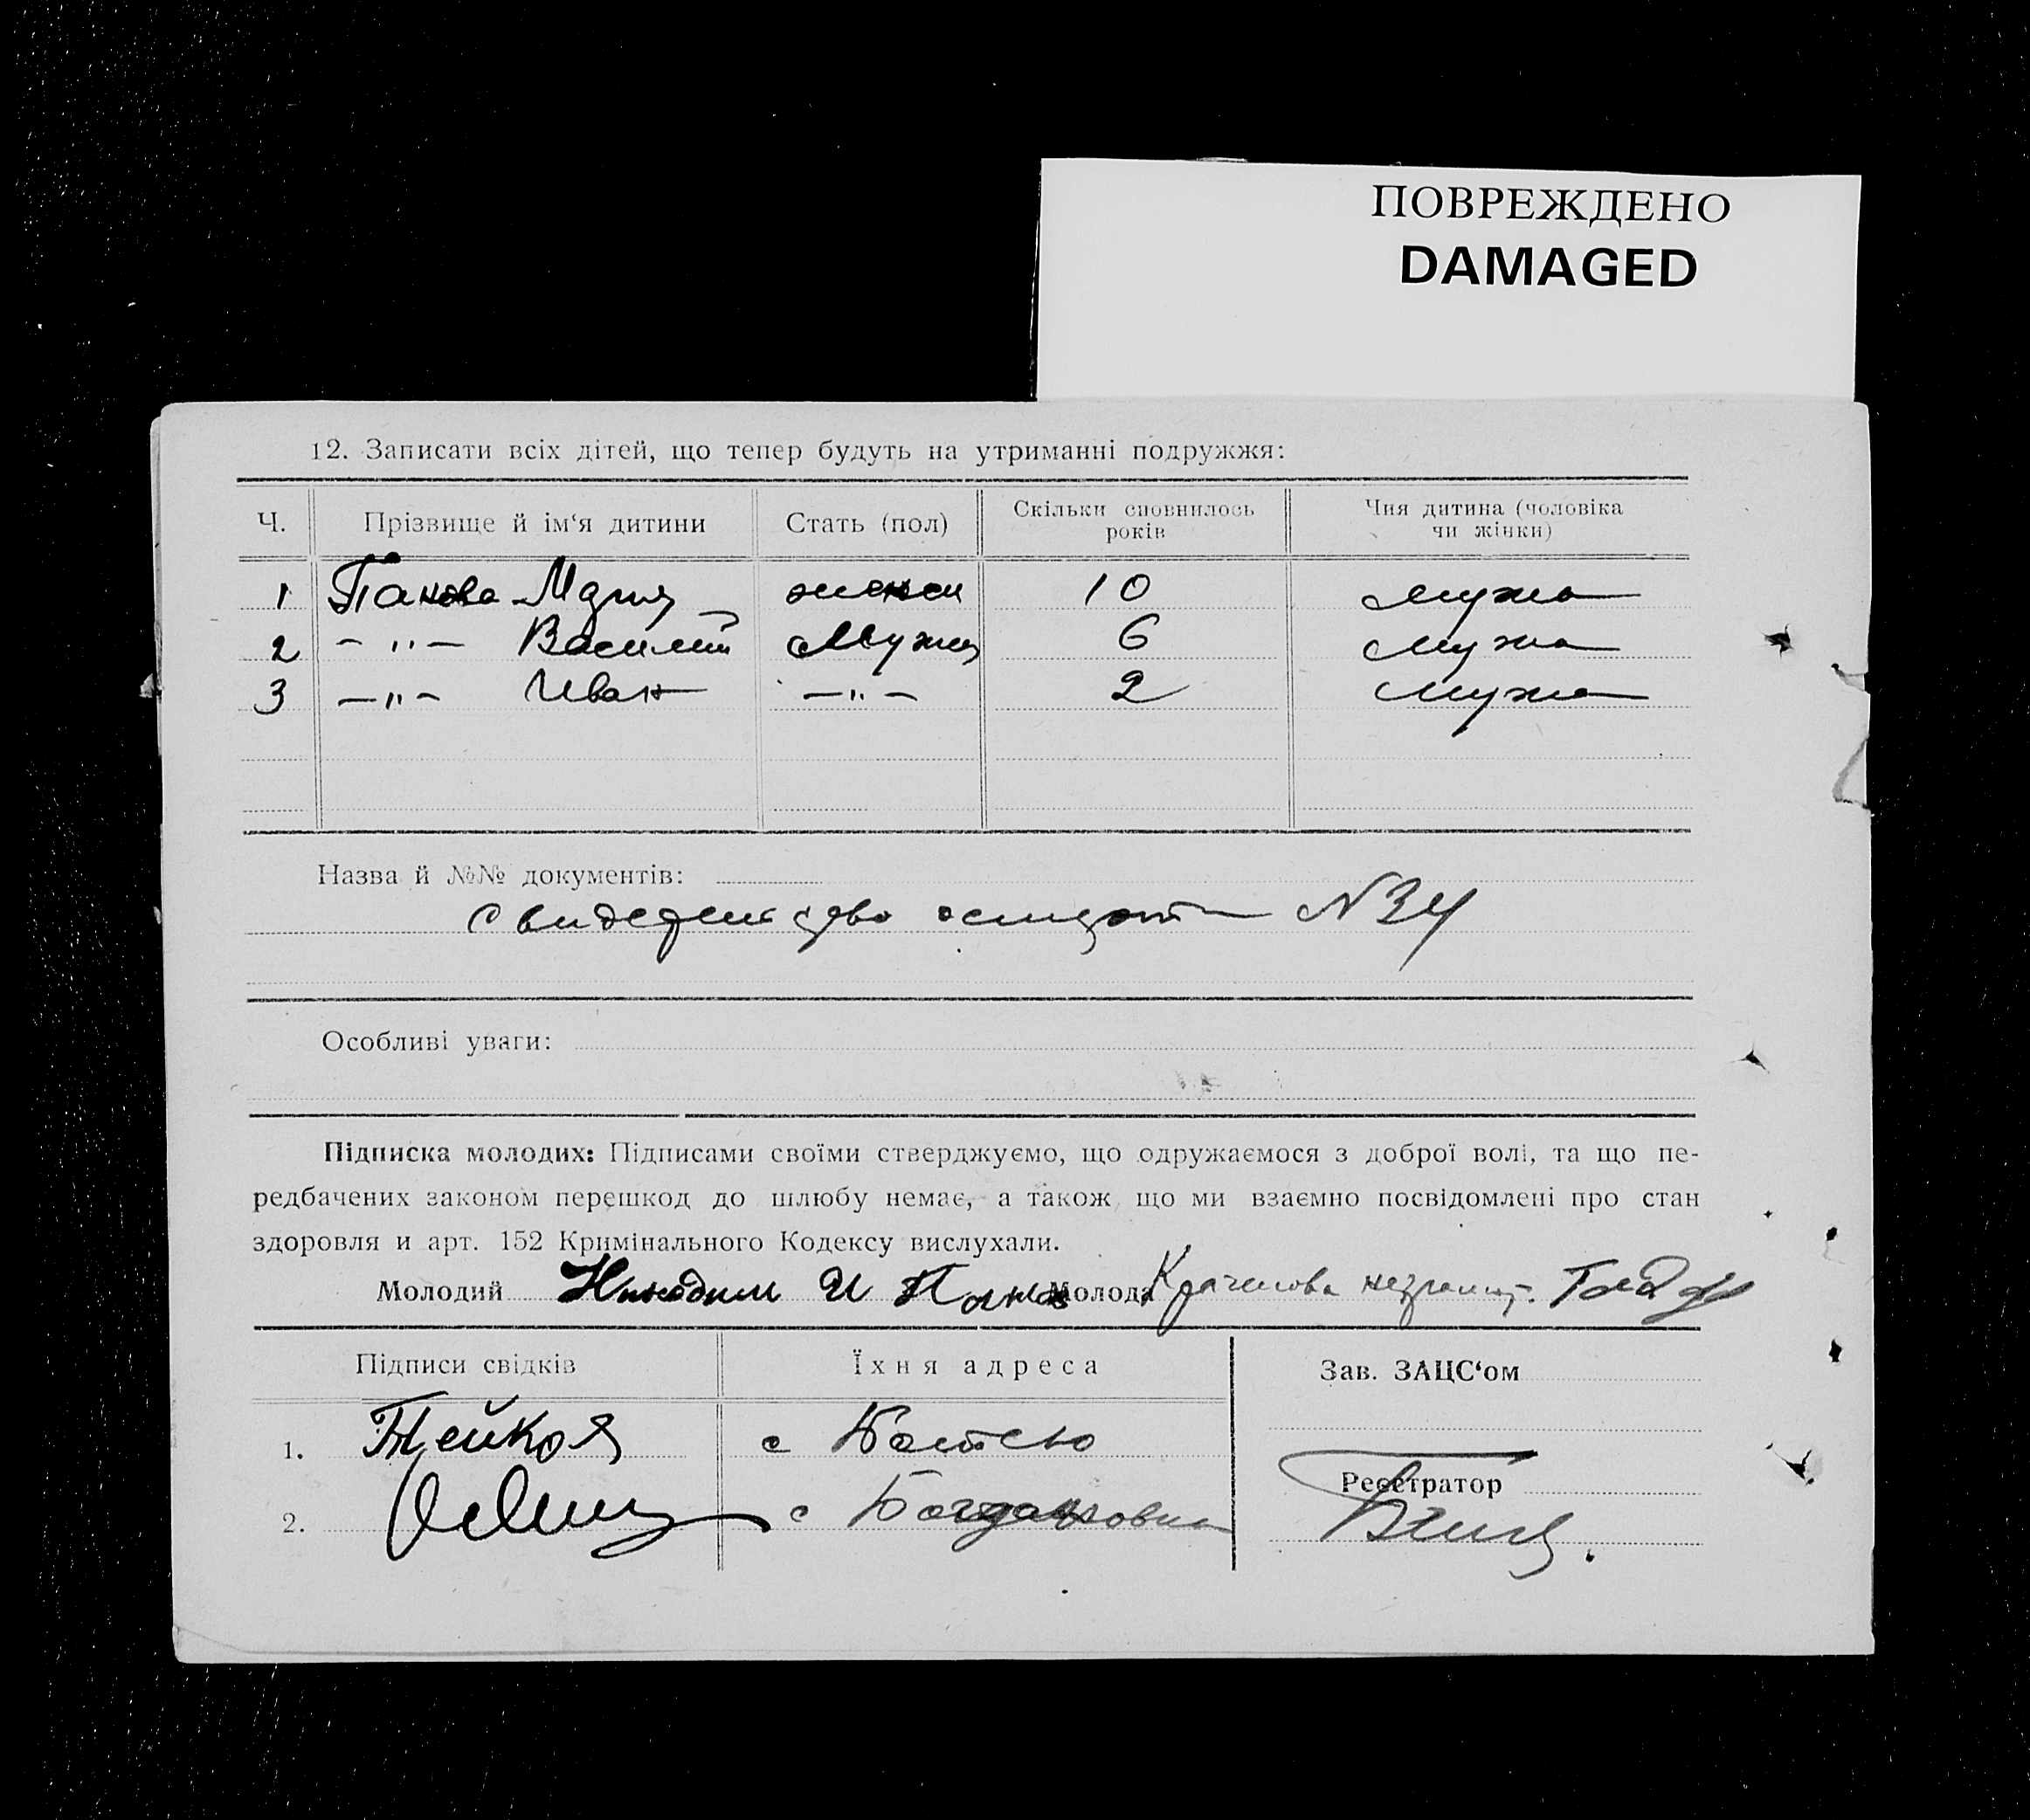 ПОВРЕЖДЕНО
DAMAGED
12. Записати всіх дітей, що тепер будуть на утриманні подружжя:
Ч. Прізвище й ім‘я дитини Стать (пол) Скільки сповнилось років Чия дитина (чоловіка чи жінки)
1 Панова Мария женск 10 мужа
2 – „ – Василий Мужск 6 мужа
3 – „ – Иван – „ – 2 мужа
Назва й №№ документів:
N 34
Особливі уваги:
Підписка молодих: Підписами своїми стверджуємо, що одружаємося з доброї волі, та що пе-
редбачених законом перешкод до шлюбу немає, а також що ми взаємно посвідомлені про стан
здоровля и арт. 152 Кримінального Кодексу вислухали.
Молодий Никодим И Панов Молода
Підписи свідків Їхня адреса Зав. ЗАЦС‘ом
1. с
Реєстратор
2. с